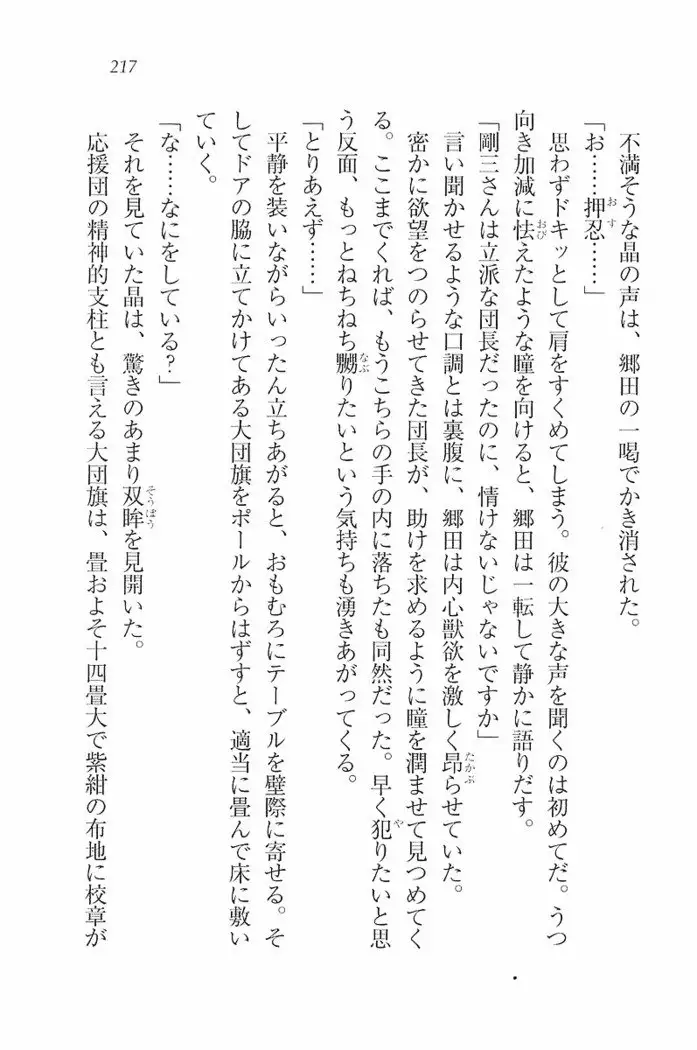 217
不満そうな晶の声は、郷田の一喝でかき消された。
「お……押忍……」
思わずドキッとして肩をすくめてしまう。彼の大きな声を聞くのは初めてだ。うつ
向き加減に怯えたような瞳を向けると、郷田は一転して静かに語りだす。
「剛三さんは立派な団長だったのに、情けないじゃないですか」
言い聞かせるような口調とは裏腹に、郷田は内心獣欲を激しく昂らせていた。
密かに欲望をつのらせてきた団長が、助けを求めるように瞳を潤ませて見つめてく
る。ここまでくれば、もうこちらの手の内に落ちたも同然だった。早く犯りたいと思
う反面、もっとねちねち嬲りたいという気持ちも湧きあがってくる。
「とりあえず……」
平静を装いながらいったん立ちあがると、おもむろにテーブルを壁際に寄せる。そ
してドアの脇に立てかけてある大団旗をポールからはずすと、適当に畳んで床に敷い
ていく。
「な……なにをしている?」
それを見ていた晶は、驚きのあまり双眸を見開いた。
応援団の精神的支柱とも言える大団旗は、畳およそ十四畳大で紫紺の布地に校章が